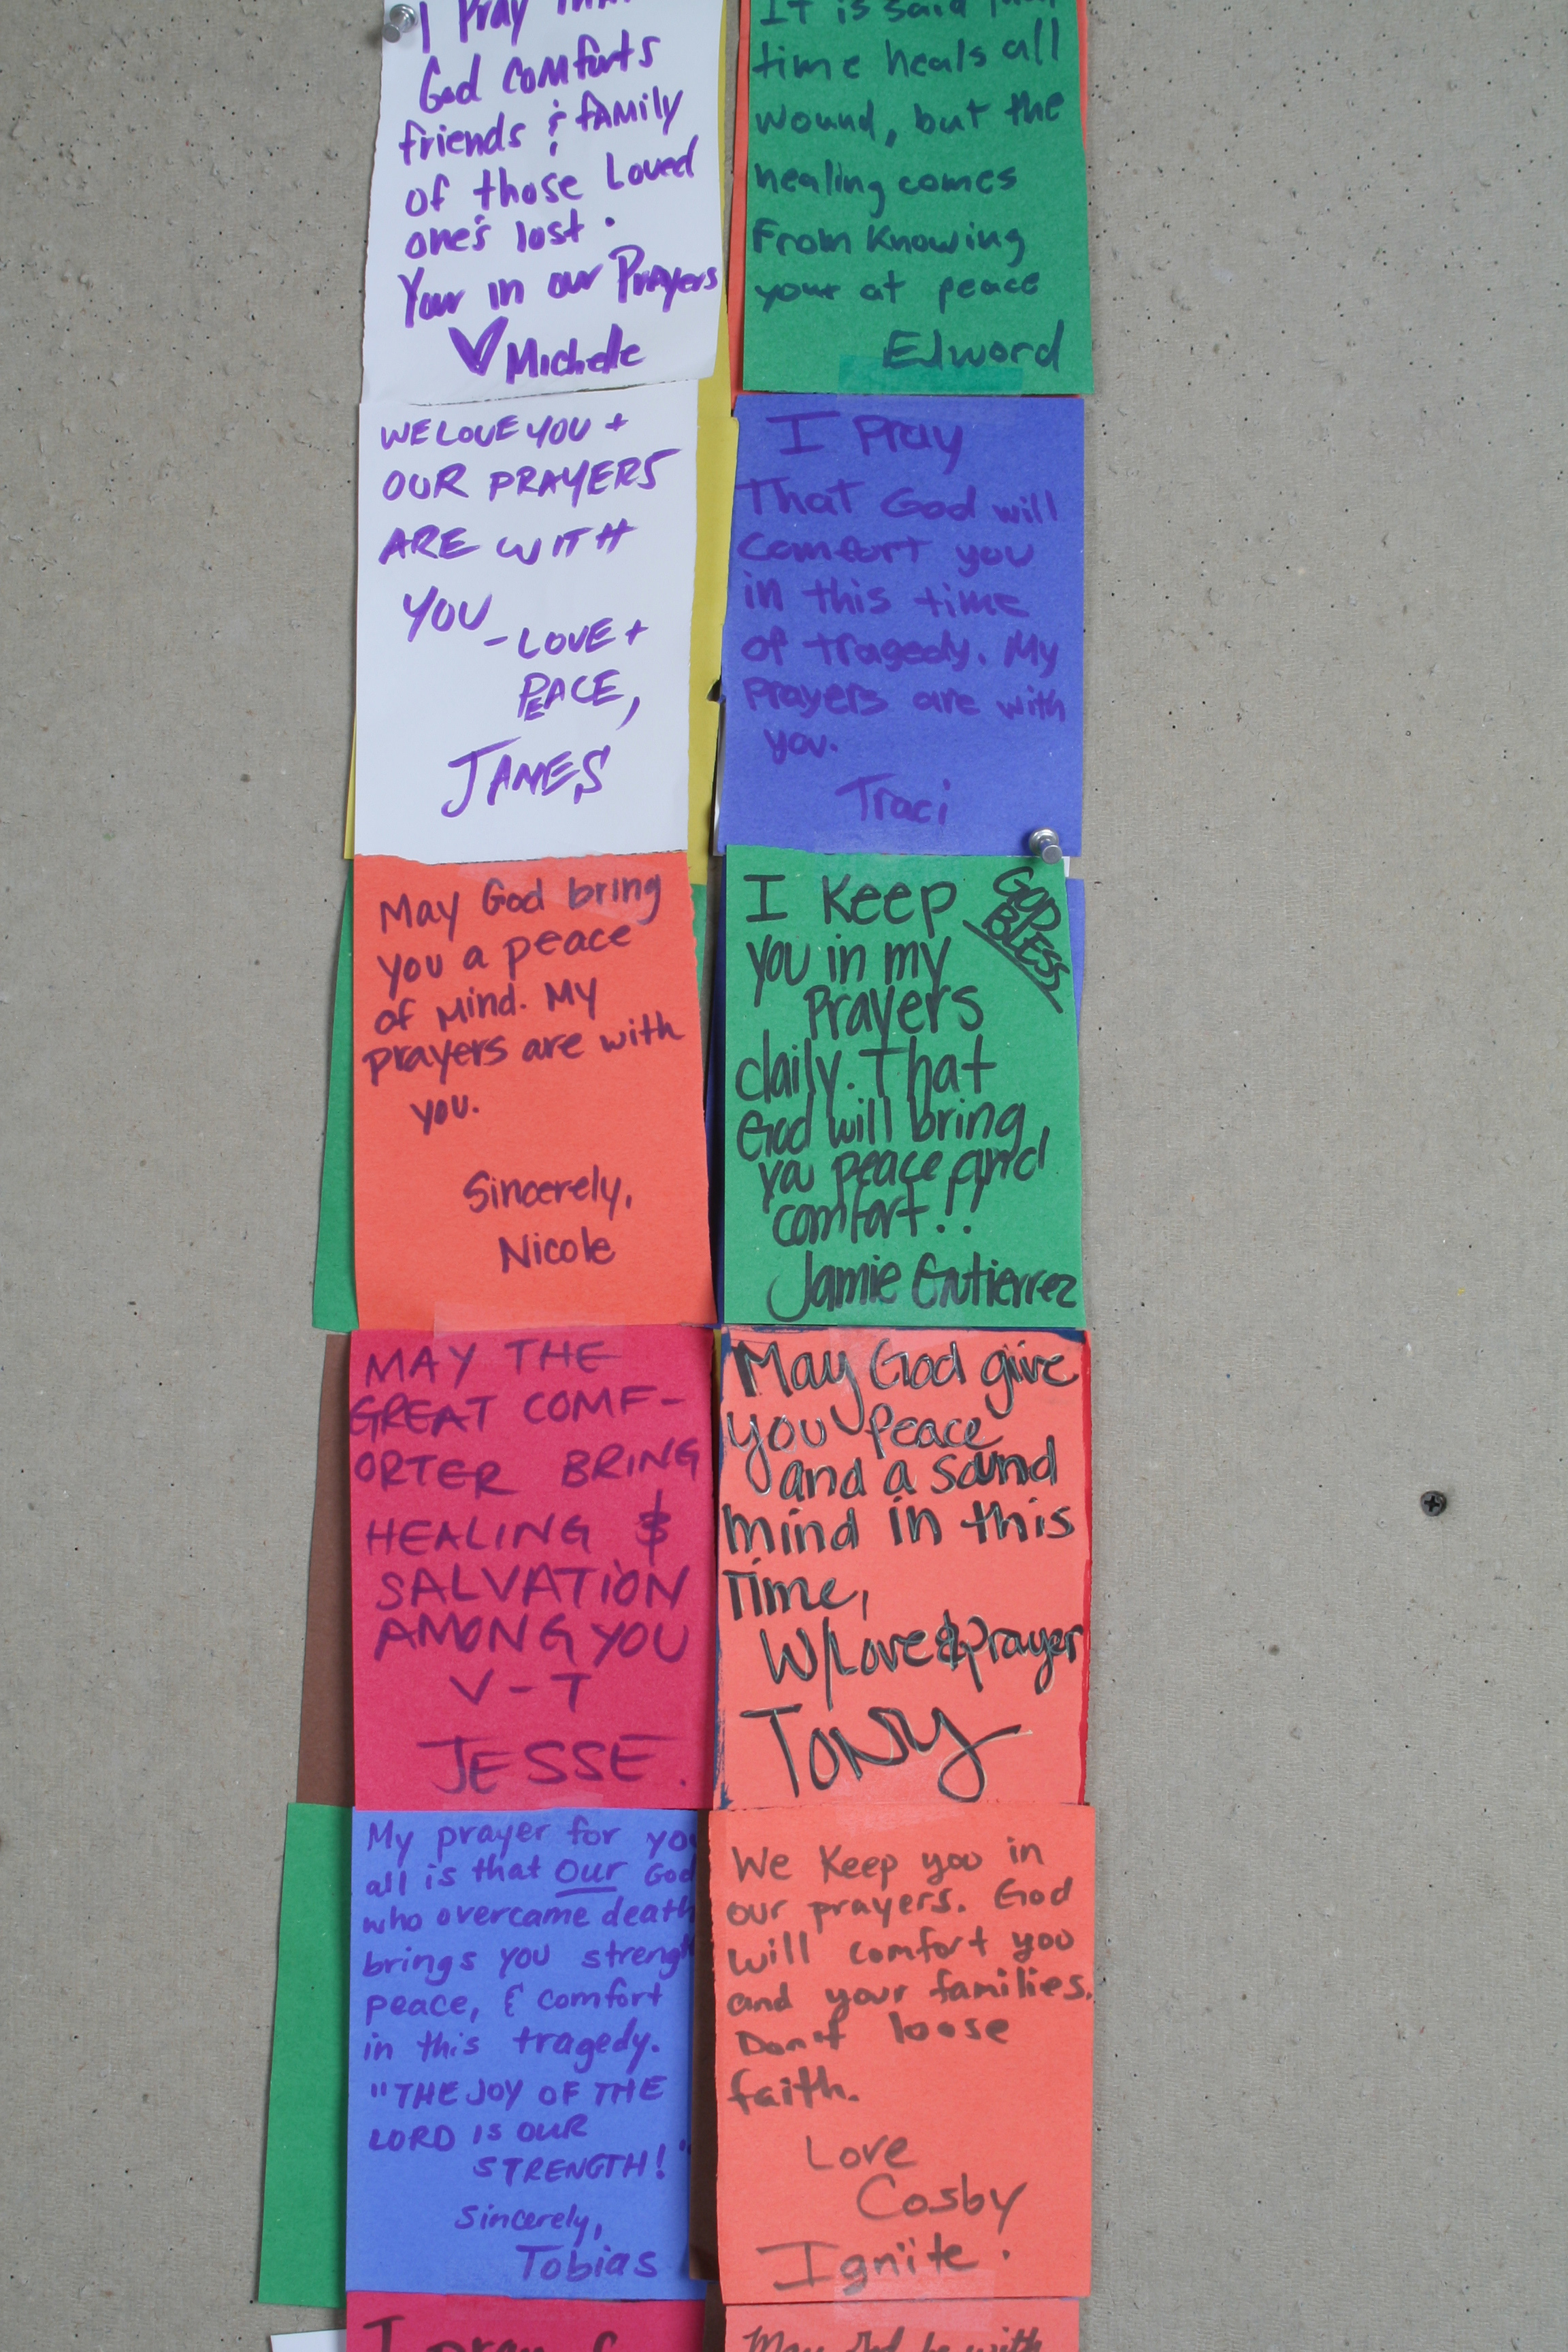 I Pray
God comforts
friends & family
of those Loved
one's lost.
Your in our Prayers
♥ Michelle
It is said that
time heals all
wound, but the
healing comes
From Knowing
your at peace
Edword
WE LOVE YOU +
OUR PRAYERS
ARE WITH
YOU
- LOVE +
PEACE,
JAMES
I Pray
That God will
Comfort you
in this time
of tragedy. My
prayers are with
you.
Traci
May God bring
you a peace
of Mind. My
prayers are with
you.
Sincerely,
Nicole
GOD
BLESS
I Keep
you in my
Prayers
daily. That
God will bring
you peace and
comfort!!
Jamie Gutierrez
MAY THE
GREAT COMF-
ORTER BRING
HEALING &
SALVATION
AMONG YOU
V-T
JESSE.
May God give
you Peace
and a sound
mind in this
Time,
W/Love & prayer
Tony
My prayer for you
all is that our God
who overcame death
brings you strength
peace, & comfort
in this tragedy.
"THE JOY OF THE
LORD IS OUR
STRENGTH!"
Sincerely,
Tobias
We Keep you in
our prayers. God
will comfort you
and your families.
Don't loose
faith.
Love
Cosby
Ignite.
I pray f
May God be with